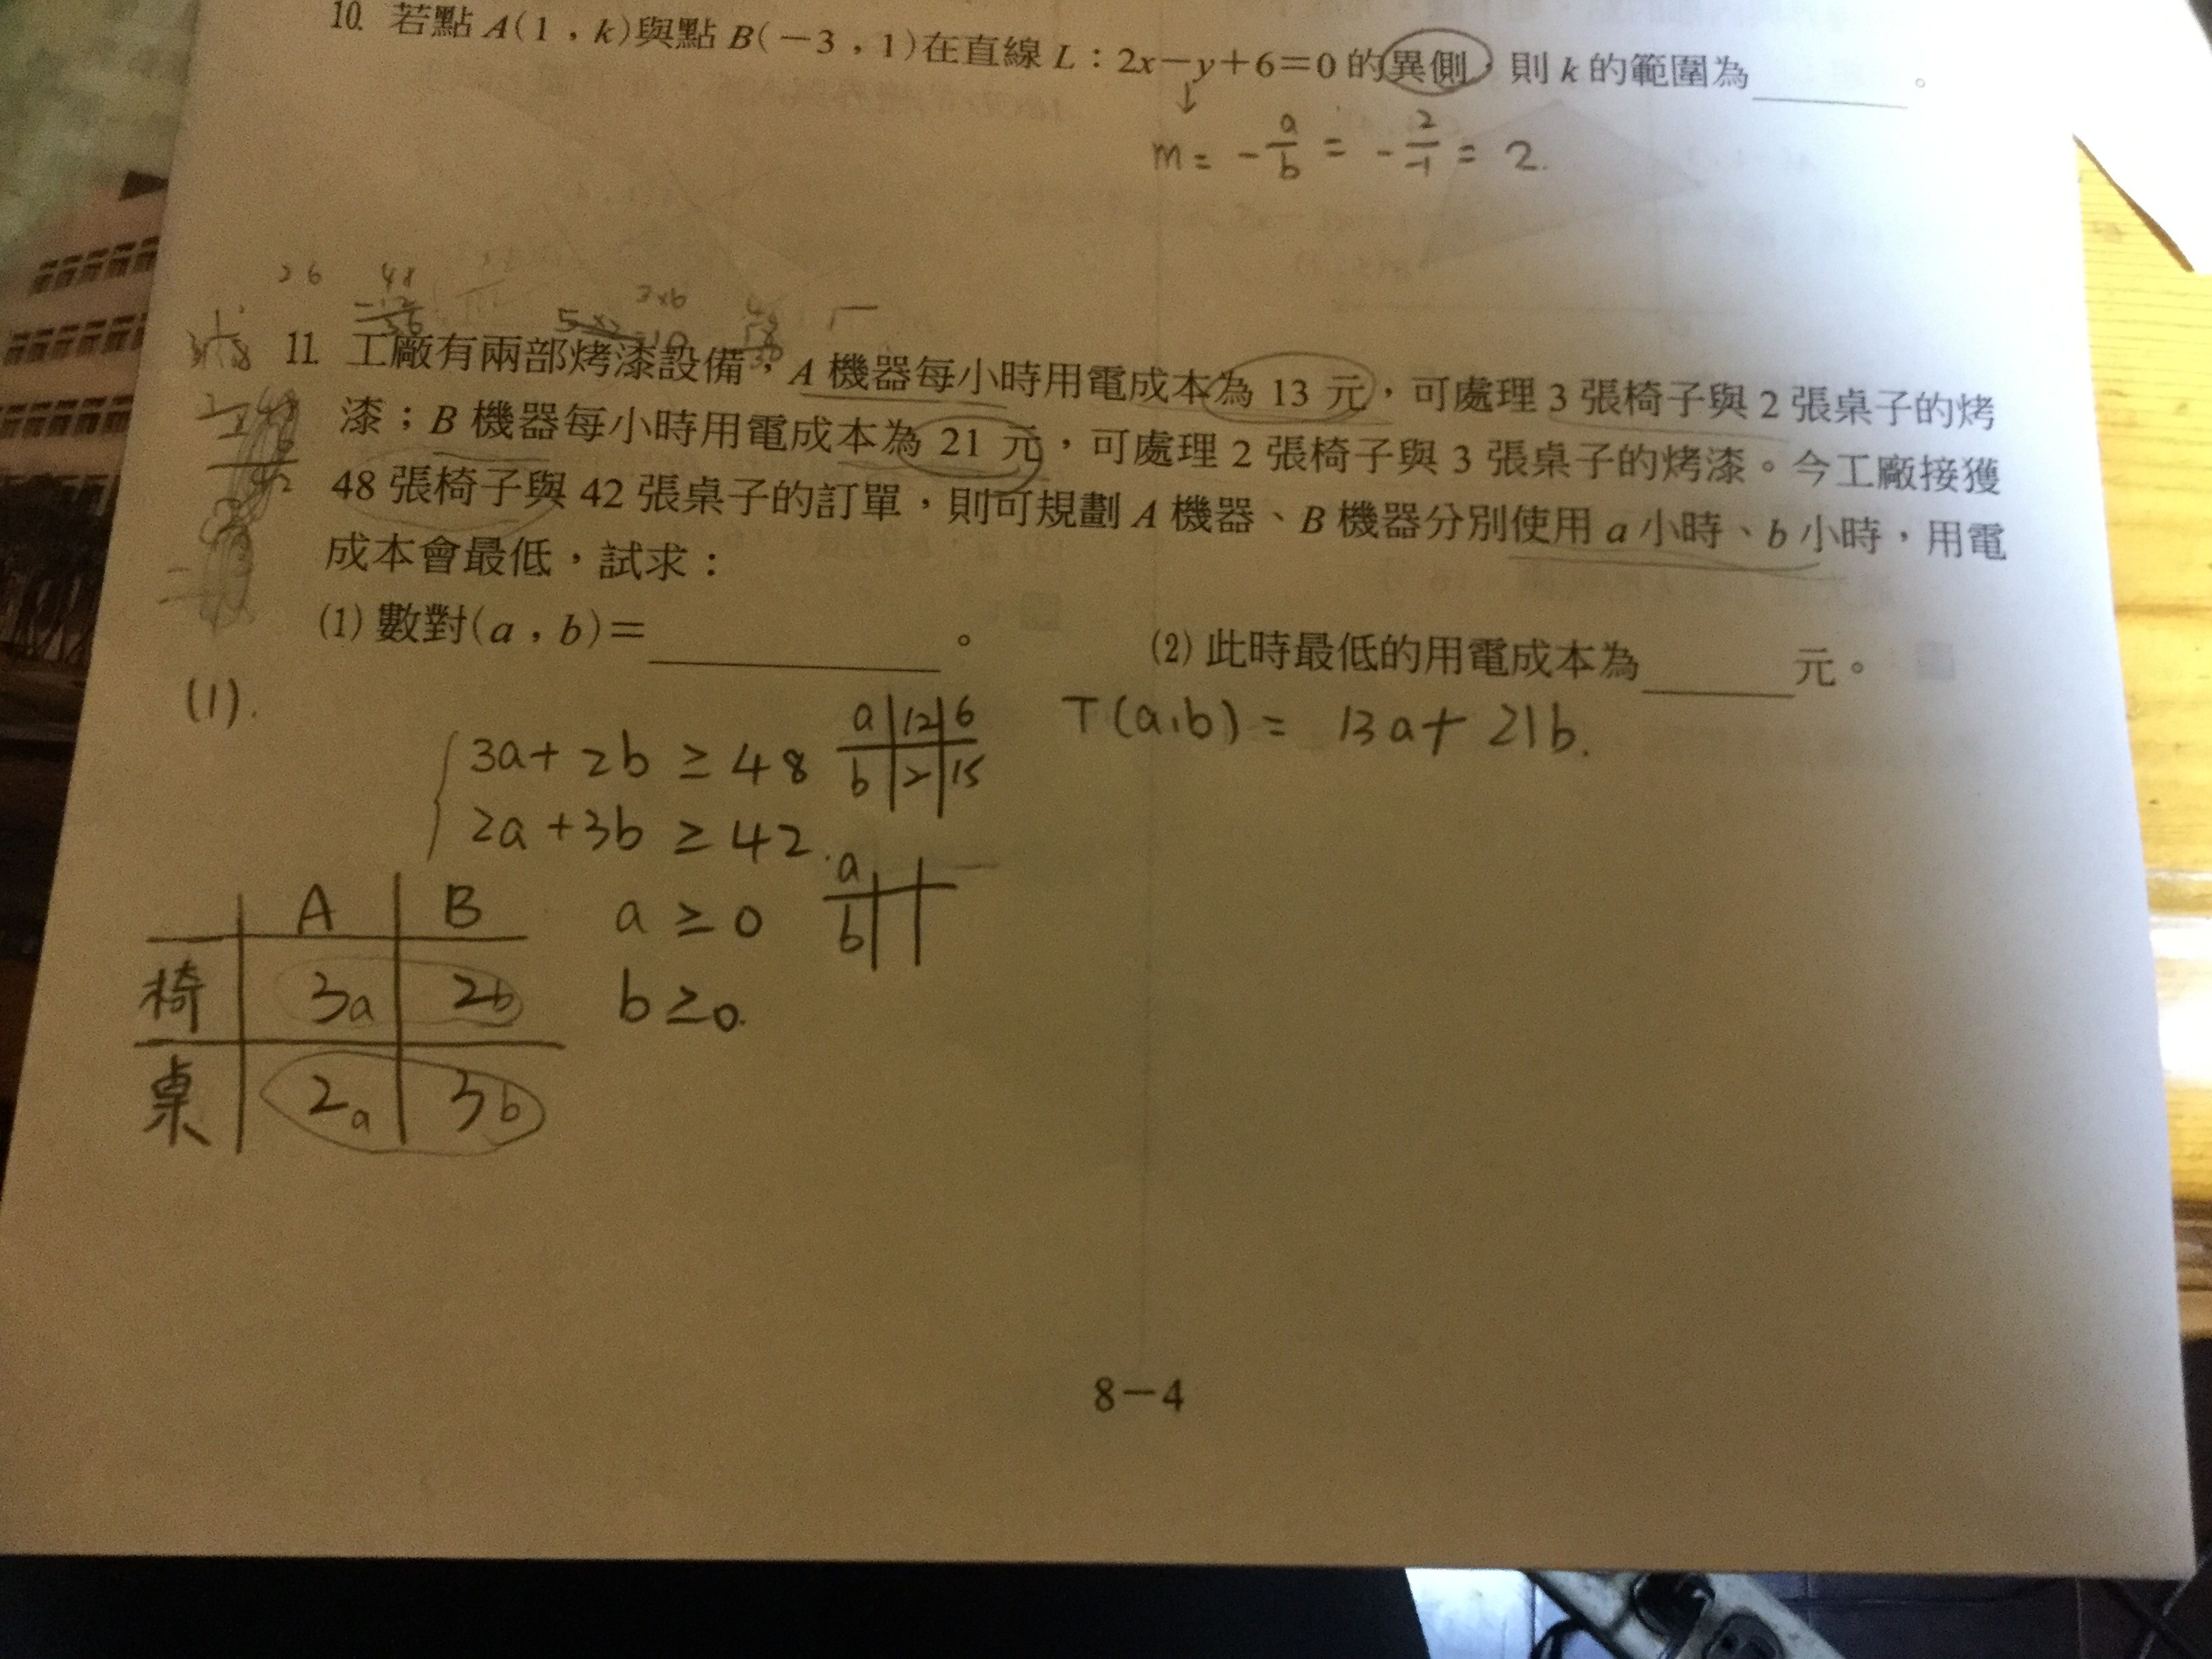 10. 若點 A(1,k)與點 B(-3,1)在直線 L:2x-y+6=0 的異側,則 k 的範圍為______。
m = - a/b = - 2/-1 = 2.
26
48
3×6
11. 工廠有兩部烤漆設備,A 機器每小時用電成本為 13 元,可處理 3 張椅子與 2 張桌子的烤
漆;B 機器每小時用電成本為 21 元,可處理 2 張椅子與 3 張桌子的烤漆。今工廠接獲
48 張椅子與 42 張桌子的訂單,則可規劃 A 機器、B 機器分別使用 a 小時、b 小時,用電
成本會最低,試求:
(1) 數對(a,b)=____________。 (2) 此時最低的用電成本為______元。
(1).
3a + 2b ≥ 48
2a + 3b ≥ 42.
a ≥ 0
b ≥ 0.
a 12 6
b 2 15
a
b
T(a,b) = 13a + 21b.
A B
椅 3a 2b
桌 2a 3b
8-4